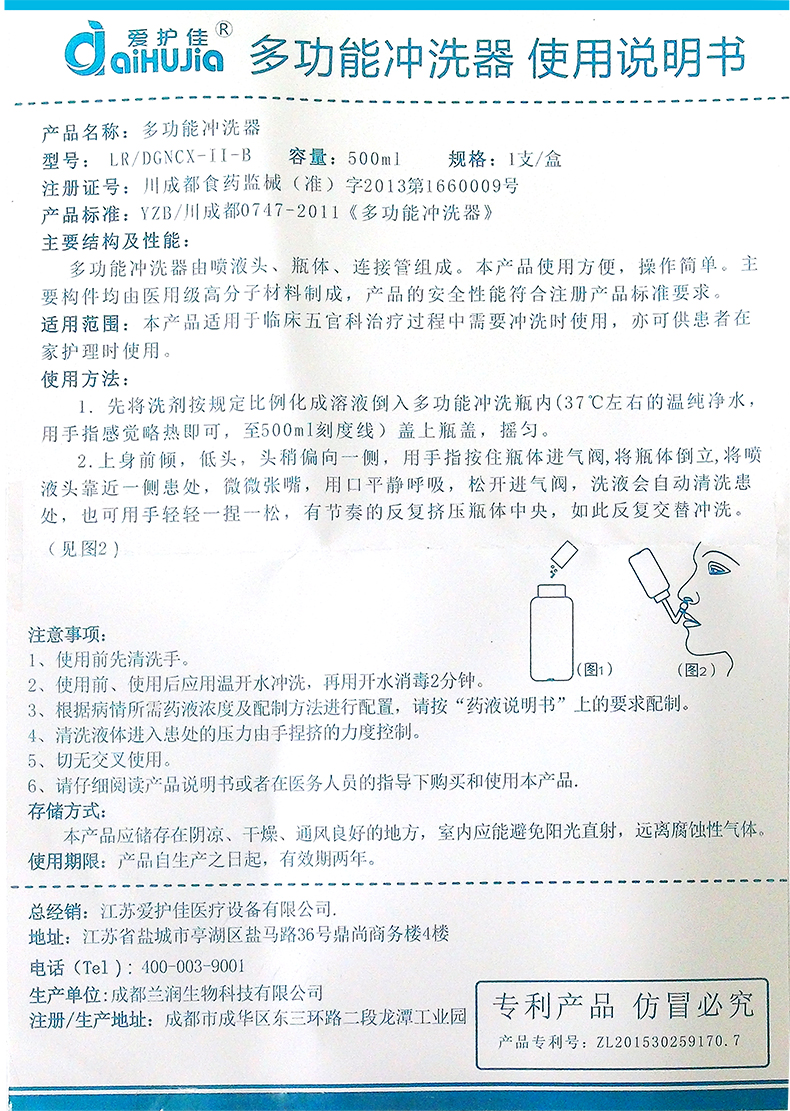 爱护佳®
aiHUJia
多功能冲洗器 使用说明书
产品名称：多功能冲洗器
型号： LR/DGNCX-II-B 容量：500ml 规格：1支/盒
注册证号：川成都食药监械（准）字2013第1660009号
产品标准：YZB/川成都0747-2011《多功能冲洗器》
主要结构及性能：
多功能冲洗器由喷液头、瓶体、连接管组成。本产品使用方便，操作简单。主
要构件均由医用级高分子材料制成，产品的安全性能符合注册产品标准要求。
适用范围：本产品适用于临床五官科治疗过程中需要冲洗时使用，亦可供患者在
家护理时使用。
使用方法：
1. 先将洗剂按规定比例化成溶液倒入多功能冲洗瓶内(37℃左右的温纯净水，
用手指感觉略热即可，至500ml刻度线）盖上瓶盖，摇匀。
2.上身前倾，低头，头稍偏向一侧，用手指按住瓶体进气阀,将瓶体倒立,将喷
液头靠近一侧患处，微微张嘴，用口平静呼吸，松开进气阀，洗液会自动清洗患
处，也可用手轻轻一捏一松，有节奏的反复挤压瓶体中央，如此反复交替冲洗。
（见图2）
（图1） （图2）
注意事项：
1、使用前先清洗手。
2、使用前、使用后应用温开水冲洗，再用开水消毒2分钟。
3、根据病情所需药液浓度及配制方法进行配置，请按“药液说明书”上的要求配制。
4、清洗液体进入患处的压力由手捏挤的力度控制。
5、切无交叉使用。
6、请仔细阅读产品说明书或者在医务人员的指导下购买和使用本产品.
存储方式：
本产品应储存在阴凉、干燥、通风良好的地方，室内应能避免阳光直射，远离腐蚀性气体。
使用期限：产品自生产之日起，有效期两年。
总经销：江苏爱护佳医疗设备有限公司.
地址：江苏省盐城市亭湖区盐马路36号鼎尚商务楼4楼
电话（Tel）：400-003-9001
生产单位:成都兰润生物科技有限公司
注册/生产地址：成都市成华区东三环路二段龙潭工业园
专利产品 仿冒必究
产品专利号：ZL201530259170.7